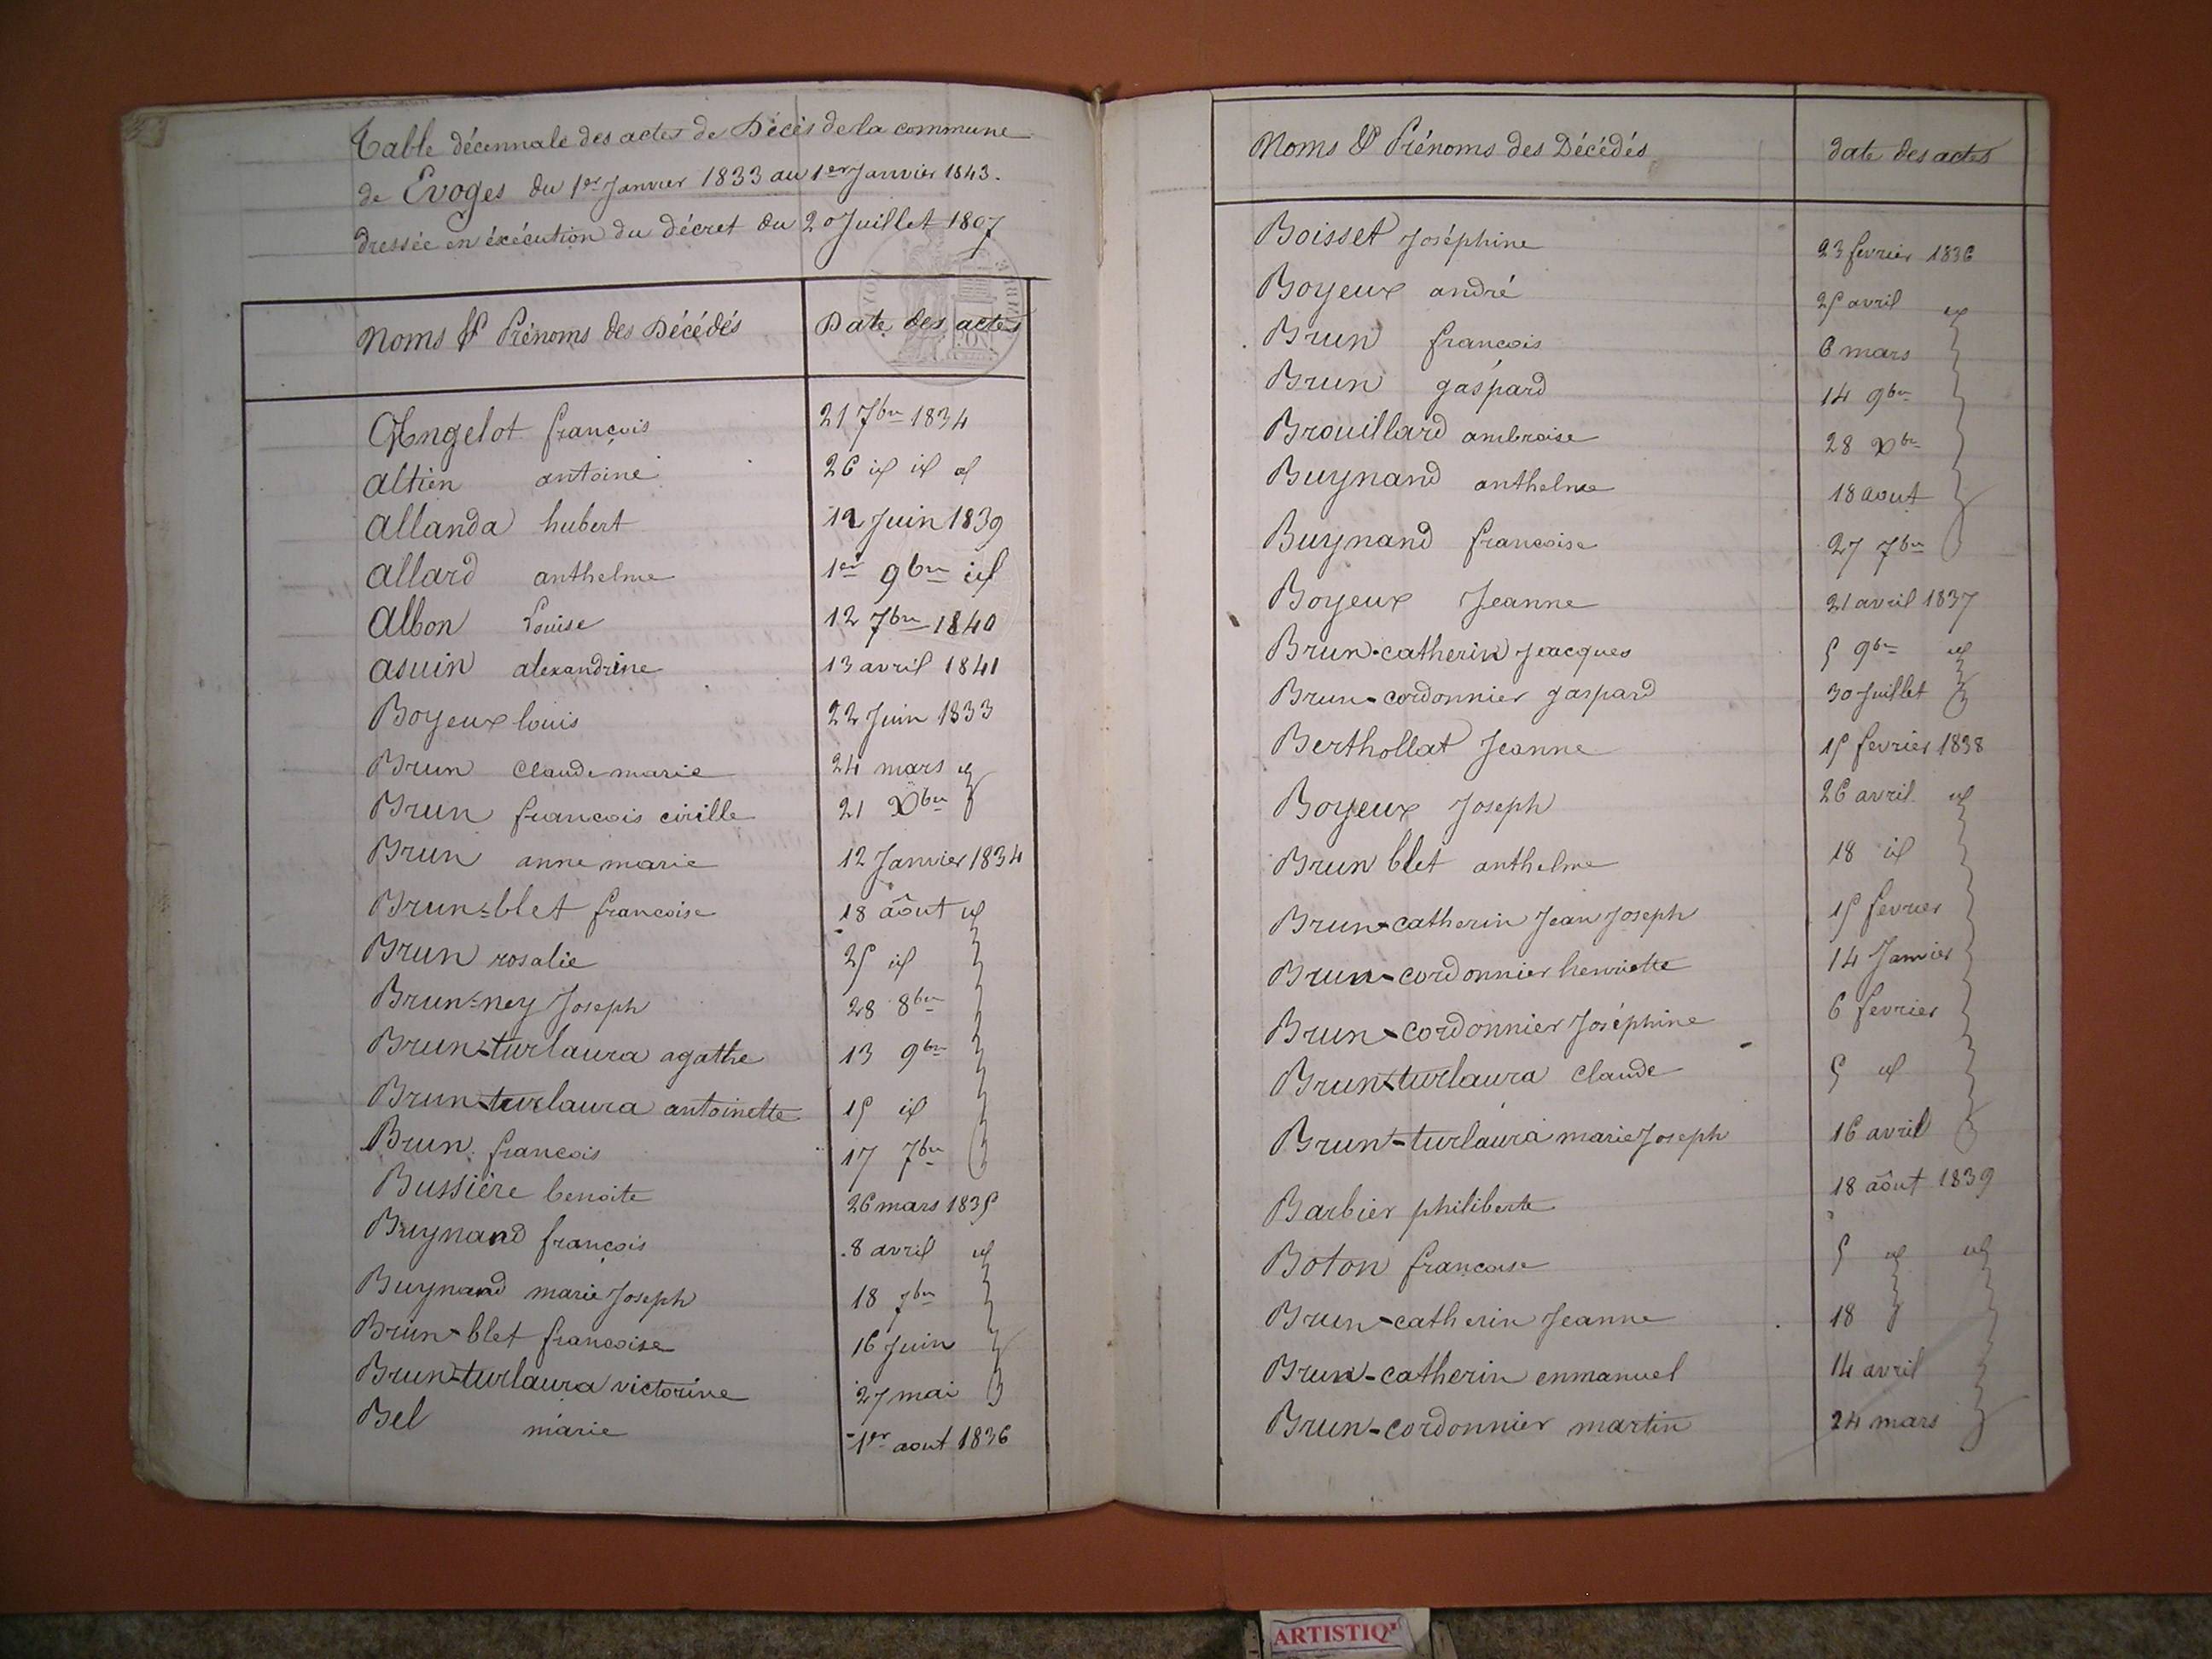 Table décennale des actes de Décès de la commune
de Evoges du 1er Janvier 1833 au 1er Janvier 1843.
dressée en éxécution du décret du 20 Juillet 1807
Noms & Prénoms des Décédés Date des actes
Angelot françois 21 7bre 1834
altien antoine 26 id id d
allanda hubert 12 Juin 1839
allard anthelme 1er 9bre id
albon Louise 12 7bre 1840
asuin alexandrine 13 avril 1841
Boyeux louis 22 Juin 1833
Brun claude marie 24 mars id
Brun francois cirille 21 Xbre
Brun anne marie 12 Janvier 1834
Brun-blet francoise 18 aôut id
Brun rosalie 25 id
Brun-ney Joseph 28 8bre
Brun-turlaura agathe 13 9bre
Brun-turlaura antoinette 15 id
Brun francois 17 7bre
Bussière benoite 26 mars 1835
Buynand françois 8 avril id
Buynand marie Joseph 18 7bre
Brun-blet francoise 16 Juin
Brun-turlaura victorine 27 mai
Bel marie 1er aout 1836
Noms & Prénoms des Décédés date des actes
Boisset Joséphine 23 fevrier 1836
Boyeux andré 25 avril id
Brun françois 6 mars
Brun gaspard 14 9bre
Brouillard ambroise 28 Xbre
Buynand anthelme 18 aout
Buynand francoise 27 7bre
Boyeux Jeanne 21 avril 1837
Brun-catherin Jeacques 5 9bre id
Brun-cordonnier gaspard 30 Juillet
Berthollat Jeanne 15 fevrier 1838
Boyeux Joseph 26 avril id
Brun blet anthelme 18 id
Brun-catherin Jean Joseph 15 fevrier
Brun-cordonnier henriette 14 Janvier
Brun-cordonnier Joséphine 6 fevrier
Brun-turlaura claude 5 id
Brun-turlaura marie Joseph 16 avril
Barbier philiberte 18 aôut 1839
Boton françoise 5 id id
Brun-catherin Jeanne 18
Brun-catherin enmanuel 14 avril
Brun-cordonnier martin 24 mars
ARTISTIQ